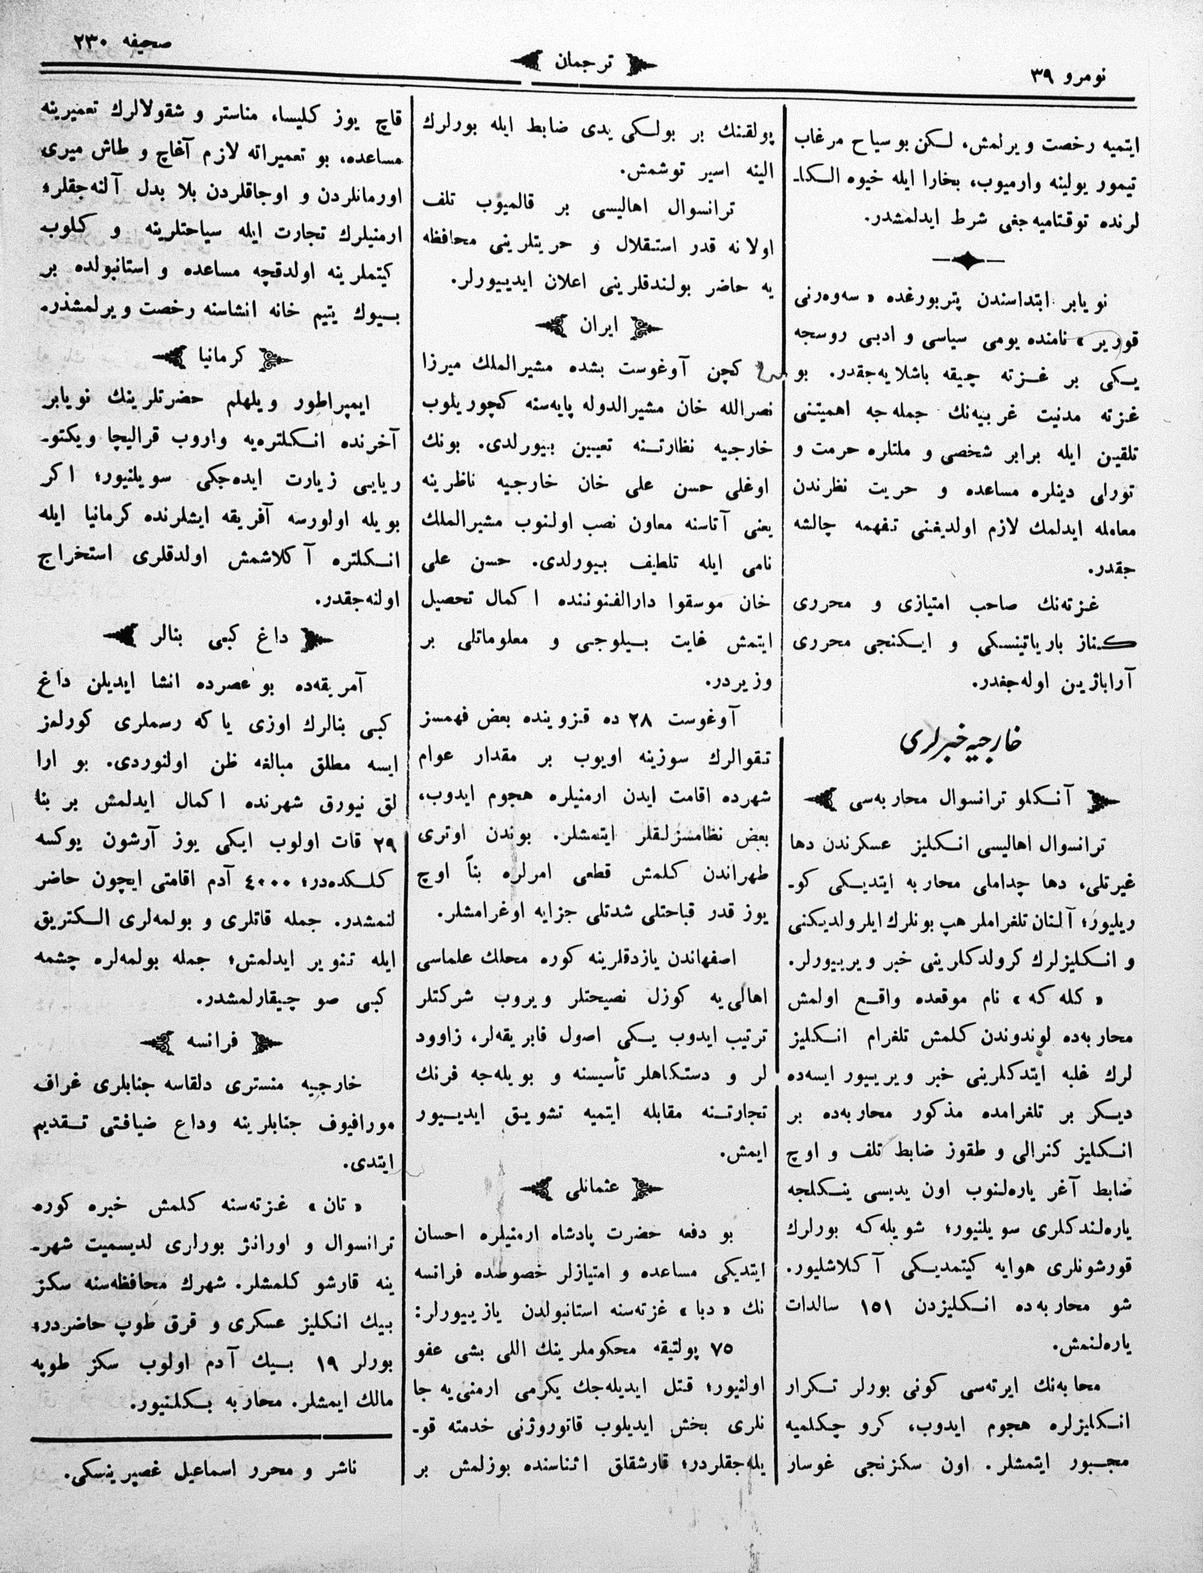 نومرو ٣٩
ترجمان
صحيفه ٢٣٠
ايتميه رخصت ويرلمش، لكن بو سياح مرغاب
تيمور يولينه وارميوب، بخارا ايله خيوه الكا-
لرنده توقتاميه‌جغى شرط ايدلمشدر.
نويابر ابتداسندن پتربورغده « سه‌وه‌رنى
قورير » نامنده يومى سياسى و ادبى روسجه
يكى بر غزته چيقه باشلايه‌جقدر. بو
غزته مدنيت غربيه‌نك جمله‌جه اهميتنى
تلقين ايله برابر شخصى و ملتلره حرمت و
تورلى دينلره مساعده و حريت نظرندن
معامله ايدلمك لازم اولديغنى تفهمه چالشه
جقدر.
غزته‌نك صاحب امتيازى و محررى
كناز بارياتينسكى و ايكنجى محررى
آراباژين اوله‌جقدر.
خارجيه خبرلرى
آنكلو ترانسوال محاربه‌سى
ترانسوال اهاليسى انكليز عسكرندن دها
غيرتلى، دها چداملى محاربه ايتديكى كو-
ريليور؛ آلنان تلغراملر هپ بونلرك ايلرولديكنى
و انكليزلرك كرولدكلرينى خبر ويرييورلر.
« كله‌كه » نام موقعده واقع اولمش
محاربه‌ده لوندوندن كلمش تلغرام انكليز
لرك غلبه ايتدكلرينى خبر ويرييور ايسه‌ده
ديكر بر تلغرامده مذكور محاربه‌ده بر
انكليز كنرالى و طقوز ضابط تلف و اوچ
ضابط آغر ياره‌لنوب اون يديسى ينكلجه
ياره‌لندكلرى سويلنيور؛ شويله‌كه بورلرك
قورشونلرى هوايه كيتمديكى آكلاشليور.
شو محاربه‌ده انكليزدن ١٥١ سالدات
ياره‌لنمش.
محابه‌نك ايرته‌سى كونى بورلر تكرار
انكليزلره هجوم ايدوب، كرو چكلميه
مجبور ايتمشلر. اون سكزنجى غوسار
پولقينك بر بولكى يدى ضابط ايله بورلرك
الينه اسير توشمش.
ترانسوال اهاليسى بر قالميوب تلف
اولانه قدر استقلال و حريتلرينى محافظه
يه حاضر بولندقلرينى اعلان ايديبورلر.
ايران
كچن آوغوست بشده مشيرالملك ميرزا
نصرالله خان مشيرالدوله پايه‌سنه كچوريلوب
خارجيه نظارتنه تعيين بيورلدى. بونك
اوغلى حسن على خان خارجيه ناظرينه
يعنى آتاسنه معاون نصب اولنوب مشيرالملك
نامى ايله تلطيف بيورلدى. حسن على
خان موسقوا دارالفنوننده اكمال تحصيل
ايتمش غايت بيلوجى و معلوماتلى بر
وزيردر.
آوغوست ٢٨ ده قزوينده بعض فهمسز
تقوالرك سوزينه اويوب بر مقدار عوام
شهرده اقامت ايدن ارمنيلره هجوم ايدوب،
بعض نظامسزلقلر ايتمشلر. بوندن اوترى
طهراندن كلمش قطعى امرلره بناً اوچ
يوز قدر قباحتلى شدتلى جزايه اوغرامشلر.
اصفهاندن يازدقلرينه كوره محلك علماسى
اهالى‌يه كوزل نصيحتلر ويروب شركتلر
ترتيب ايدوب يكى اصول فابريقه‌لر، زاوود
لر و دستكاهلر تأسيسنه و بويله‌جه فرنك
تجارتنه مقابله ايتميه تشويق ايدييور
ايمش.
عثمانلى
بو دفعه حضرت پادشاه ارمنيلره احسان
ايتديكى مساعده و امتيازلر خصوصده فرانسه
نك « دبا » غزته‌سنه استانبولدن يازييورلر:
٧٥ پولتيقه محكوملرينك اللى بشى عفو
اولنيور؛ قتل ايديله‌جك يكرمى ارمنى‌يه جا
نلرى بخش ايديلوب قاتوروژنى خدمته قو-
يله‌جقلردر؛ قارشقلق اثناسنده بوزلمش بر
قاچ يوز كليسا، مناستر و شقولالرك تعميرينه
مساعده، بو تعميراته لازم آغاچ و طاش ميرى
اورمانلردن و اوجاقلردن بلا بدل آلنه‌جقلر؛
ارمنيلرك تجارت ايله سياحتلرينه و كلوب
كيتملرينه اولدقچه مساعده و استانبولده بر
بيوك يتيم خانه انشاسنه رخصت ويرلمشذر.
كرمانيا
ايمپراطور ويلهلم حضرتلرينك نويابر
آخرنده انكلتره‌يه واروب قراليچا ويكتو-
ريايى زيارت ايده‌جكى سويلنيور؛ اكر
بويله اولورسه آفريقه ايشلرنده كرمانيا ايله
انكلتره آكلاشمش اولدقلرى استخراج
اولنه‌جقدر.
داغ كبى بنالر
آمريقه‌ده بو عصرده انشا ايديلن داغ
كبى بنالرك اوزى ياكه رسملرى كورلمز
ايسه مطلق مبالغه ظن اولنوردى. بو ارا
لق نيورق شهرنده اكمال ايدلمش بر بنا
٢٩ قات اولوب ايكى يوز آرشون يوكسه
كلكده‌در؛ ٤٠٠٠ آدم اقامتى ايچون حاضر
لنمشدر. جمله قاتلرى و بولمه‌لرى الكتريق
ايله تنوير ايدلمش؛ جمله بولمه‌لره چشمه
كبى صو چيقارلمشدر.
فرانسه
خارجيه منسترى دلقاسه جنابلرى غراف
مورافيوف جنابلرينه وداع ضيافتى تقديم
ايتدى.
« تان » غزته‌سنه كلمش خبره كوره
ترانسوال و اورانژ بورلرى لديسميت شهر-
ينه قارشو كلمشلر. شهرك محافظه‌سنه سكز
بيك انكليز عسكرى و قرق طوپ حاضردر؛
بورلر ١٩ بيك آدم اولوب سكز طوپه
مالك ايمشلر. محاربه بكلنيور.
ناشر و محرر اسماعيل غصپرينسكى.